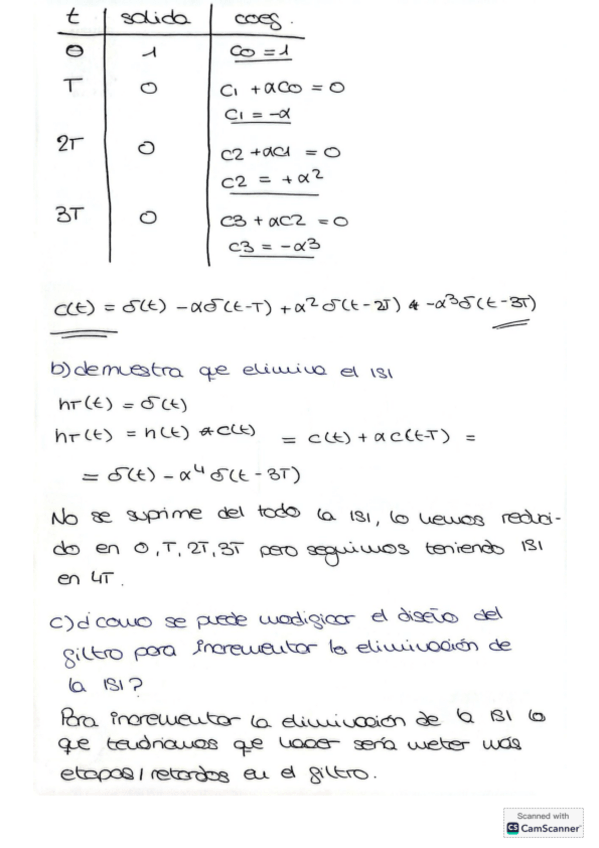 t salida coef.
0 1 C0 = 1
T 0 C1 + αC0 = 0
C1 = -α
2T 0 C2 + αC1 = 0
C2 = + α²
3T 0 C3 + αC2 = 0
C3 = -α³
C(t) = δ(t) - αδ(t-T) + α² δ(t-2T) + -α³δ(t-3T)
b) demuestra que elimina el ISI
hT(t) = δ(t)
hT(t) = h(t) * C(t) = C(t) + αC(t-T) =
= δ(t) - α⁴ δ(t-3T)
No se suprime del todo la ISI, lo hemos reduci-
do en 0, T, 2T, 3T pero seguimos teniendo ISI
en 4T.
c) ¿como se puede modificar el diseño del
filtro para incrementar la eliminación de
la ISI?
Para incrementar la eliminación de la ISI lo
que tendriamos que hacer sería meter más
etapas/retardos en el filtro.
Scanned with
CS CamScanner